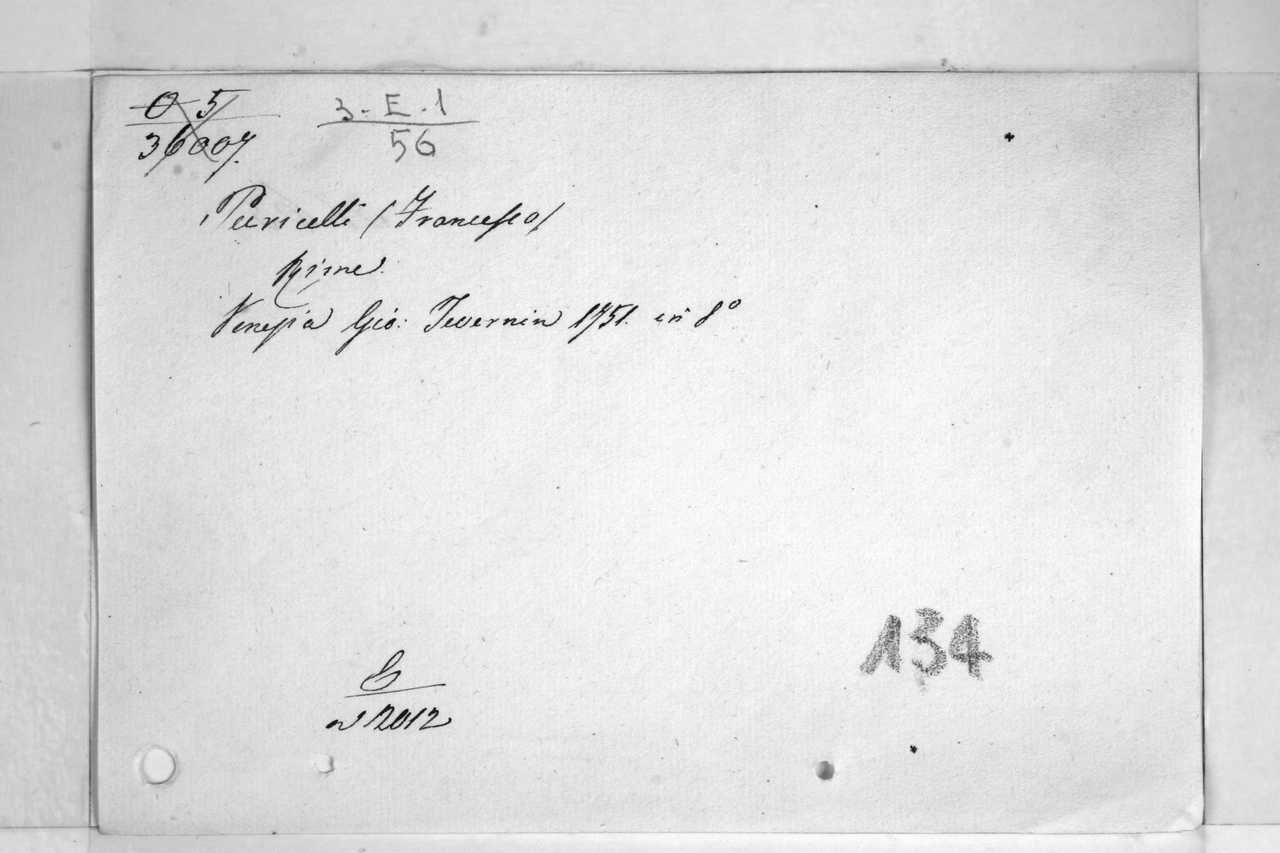 O 5
36007.
3-E-1
56
Puricelli (Francesco)
Rime.
Venezia Gio: Tevernin 1751. in 8º
134
2012